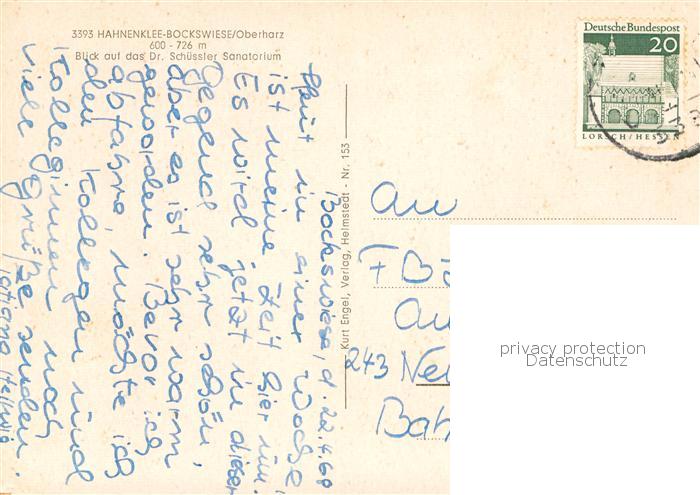 3393 HAHNENKLEE-BOCKSWIESE/Oberharz
600 - 726 m
Blick auf das Dr. Schüssler Sanatorium
Deutsche Bundespost
20
LORSCH/HESSEN
Kurt Engel, Verlag, Helmstedt - Nr. 153
Bockswiese, d. 22.4.68
Heut in einer Woche
ist meine Zeit hier um.
Es wird jetzt in dieser
Gegend sehr schön,
aber es ist sehr warm
geworden. Bevor ich
abfahre, möchte ich
den Kollegen und
Kolleginnen noch
viele Grüße senden.
An
243
privacy protection
Datenschutz